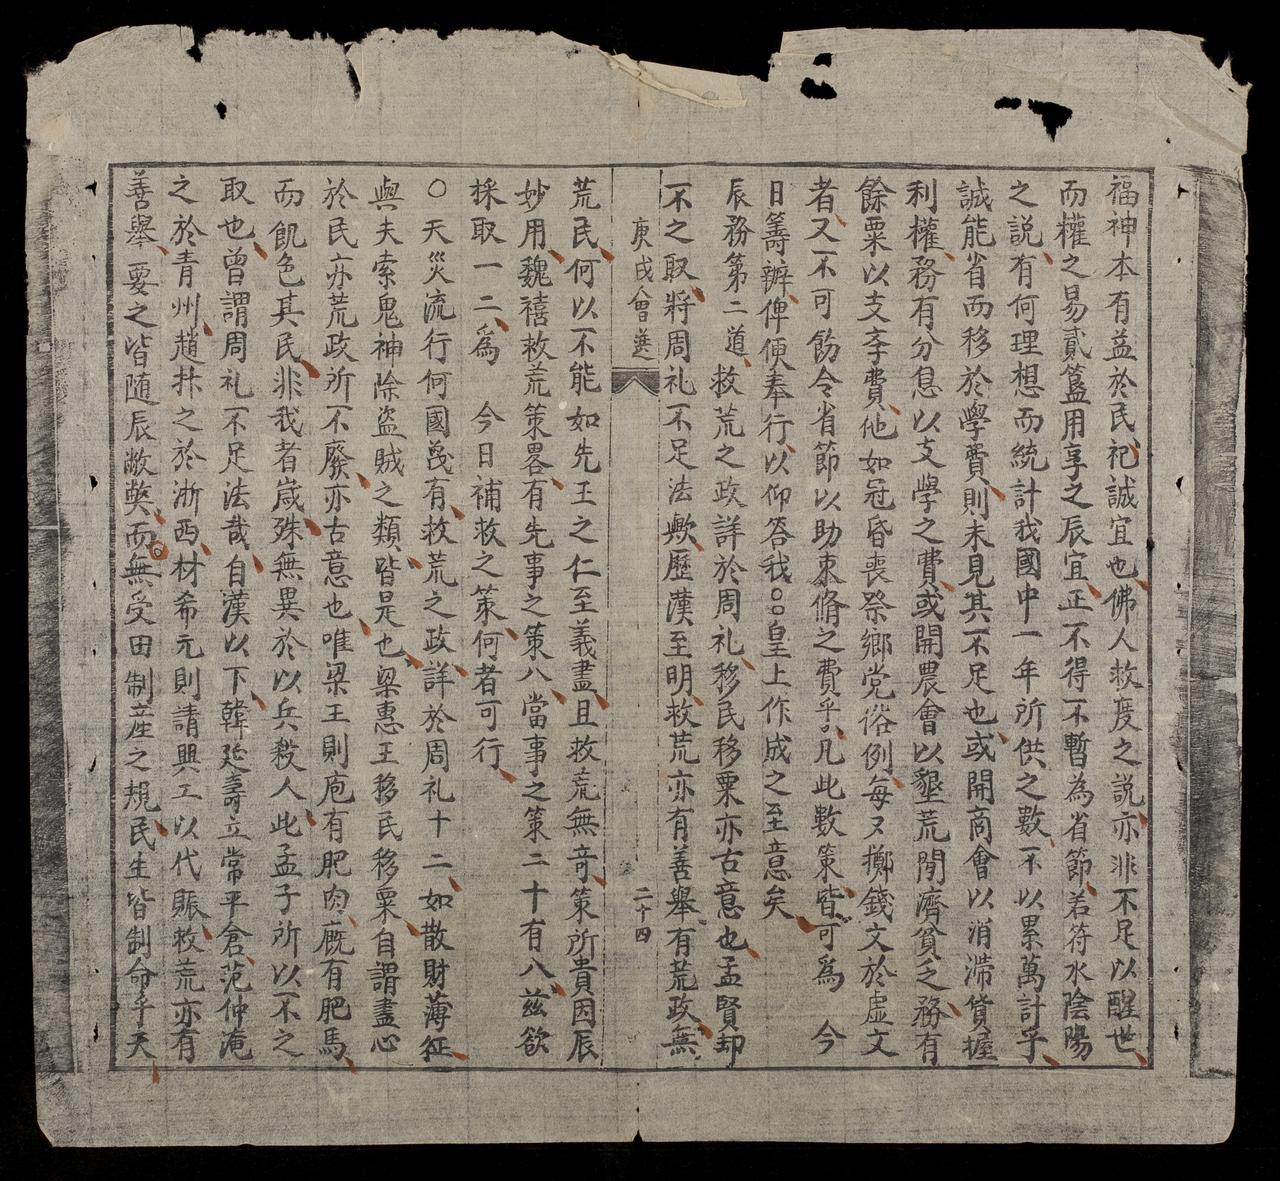 福神本有益於民祀誠宜也佛人救度之説亦非不足以醒世
而權之易貳簋用享之辰宜正不得不暫為省節若符水陰陽
之説有何理想而統計我國中一年所供之數不以累萬計乎
誠能省而移於學費則未見其不足也或開商會以消滞貨握
利權務有分息以支學之費或開農會以墾荒閒濟貧乏務有
餘粟以支斈費他如冠昏喪祭鄉党俗例每又擲錢文於虚文
者又不可飭令省節以助束脩之費乎凡此數策皆可為　今
日籌辦俾便奉行以仰答我○○皇上作成之至意矣
辰務第二道救荒之政詳於周礼移民移粟亦古意也孟賢却
不之取將周礼不足法歟歷漢至明救荒亦有善舉有荒政無
庚戌會選
二十四
荒民何以不能如先王之仁至義盡且救荒無竒策所貴因辰
妙用魏禧救荒策畧有先事之策八當事之策二十有八兹欲
採取一二為　今日補救之策何者可行
○天災流行何國蔑有救荒之政詳於周礼十二如散財薄征
與夫索鬼神除盗賊之類皆是也梁惠王移民移粟自謂盡心
於民亦荒政所不廢亦古意也唯梁王則庖有肥肉廐有肥馬
而飢色其民非我者歲殊無異於以兵殺人此孟子所以不之
取也曾謂周礼不足法哉自漢以下韓延壽立常平倉范仲淹
之於青州趙抃之於浙西材希元則請興工以代賑救荒亦有
善舉要之皆随辰敝獘而無受田制産之規民生皆制命乎天